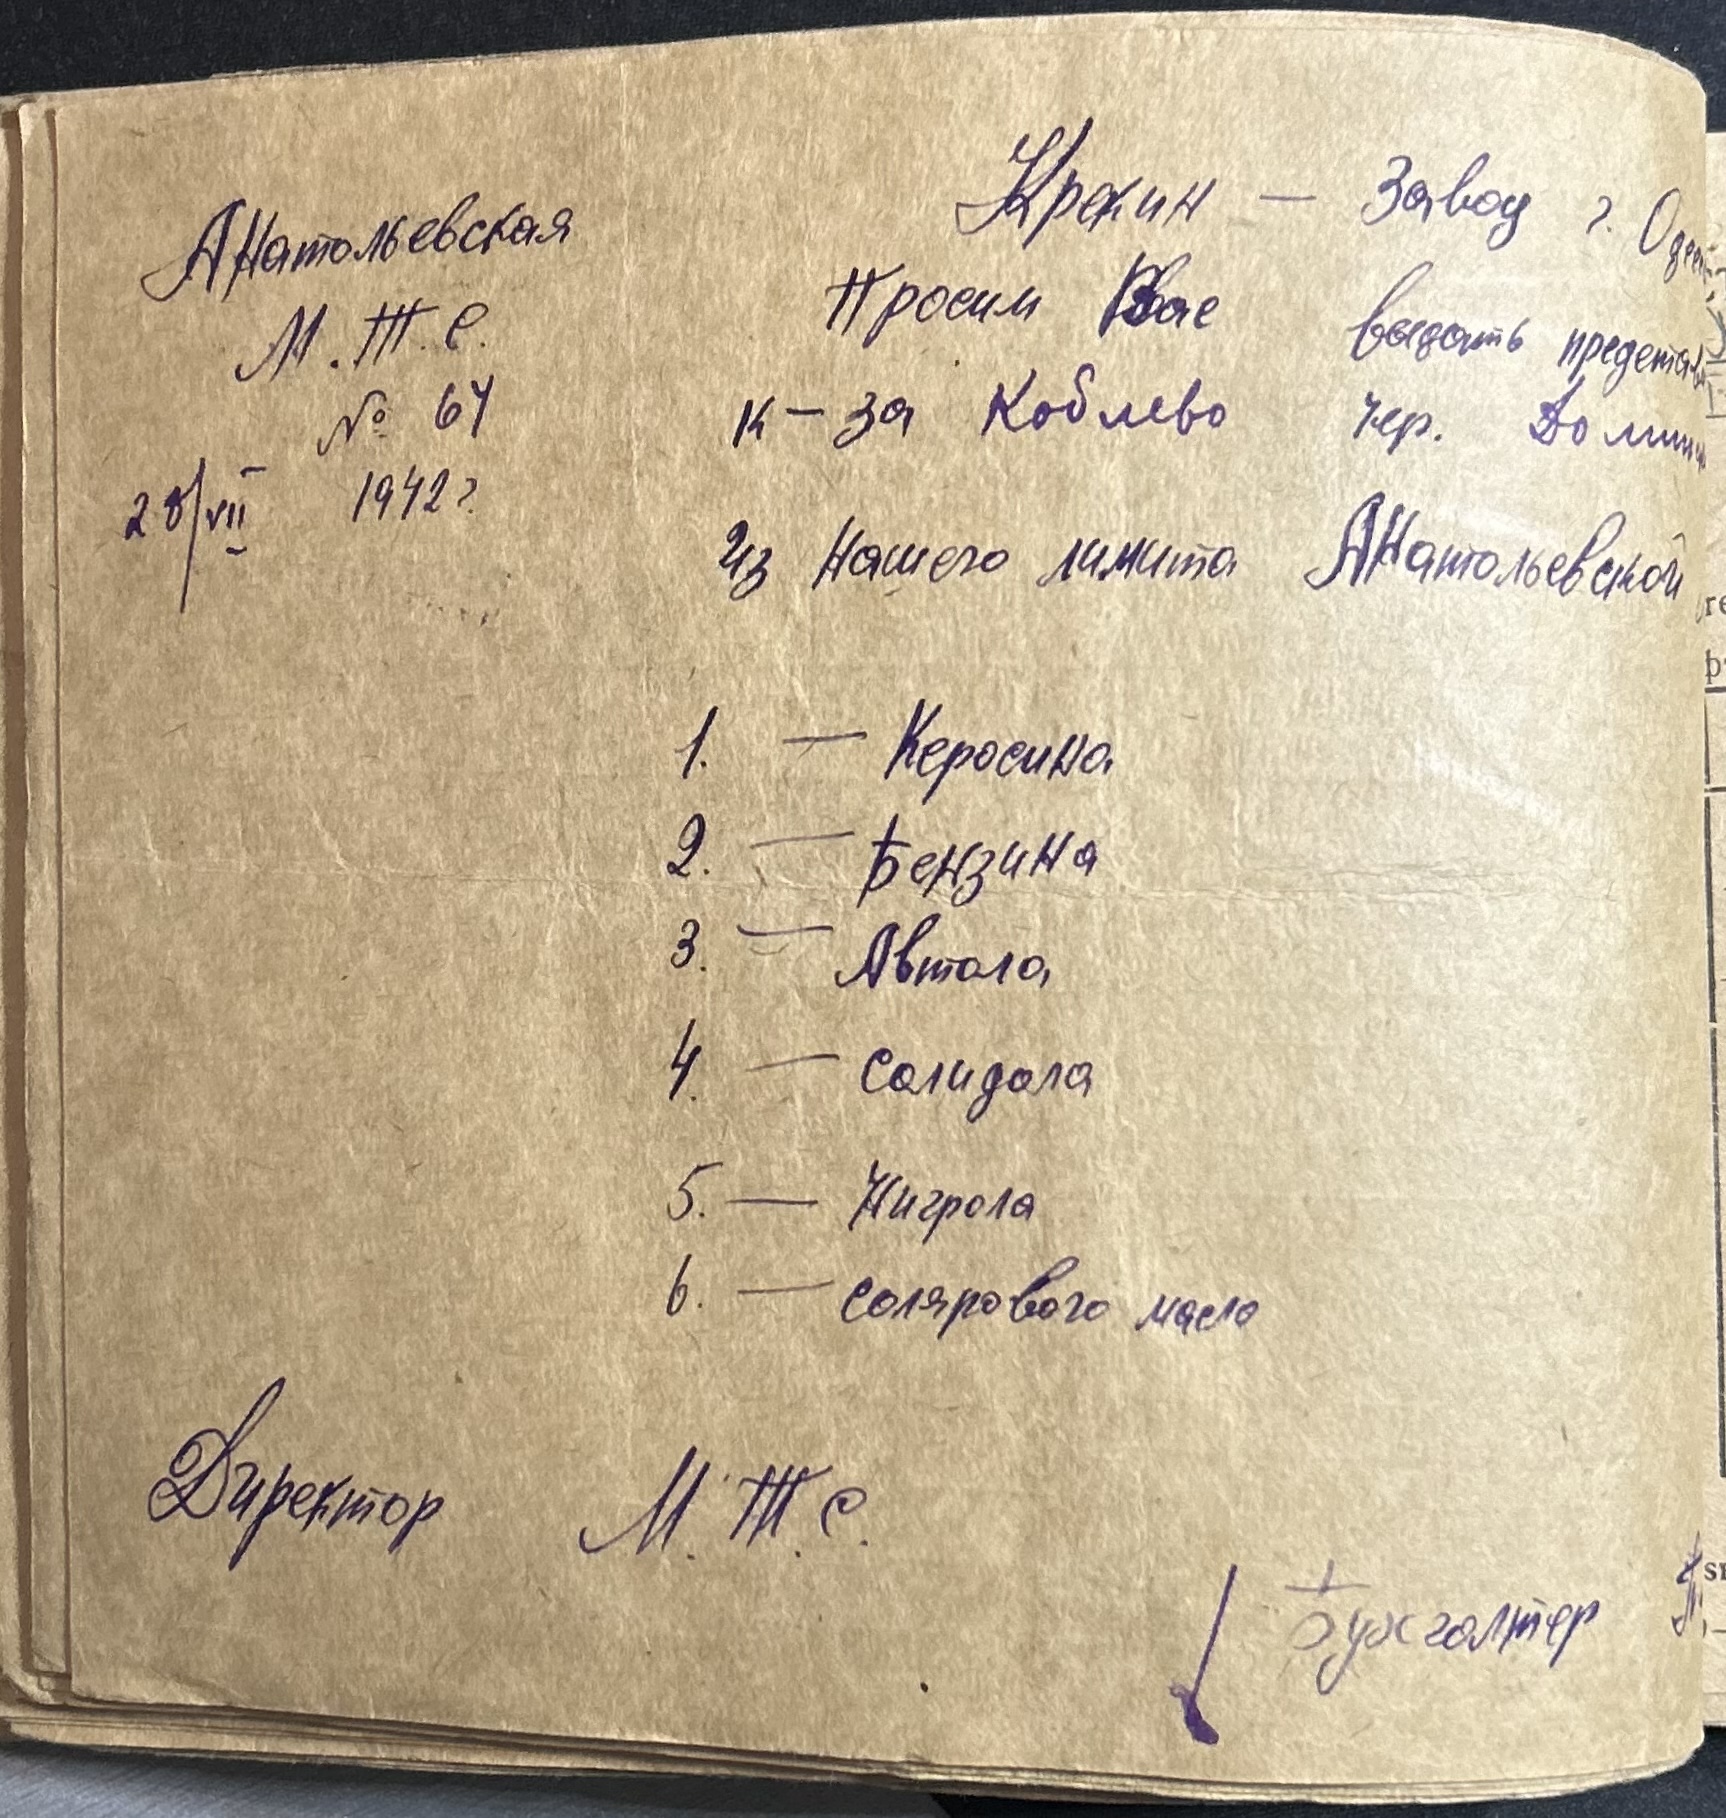 Анатольевская
М.Т.С.
№ 64
28/VII 1942 г.
Крекин — Завод г. Одес
Просим Вас выдать представ
к-за Коблево чер. Домни
Из нашего лимита Анатольевской
1. — Керосина
2. — Бензина
3. — Автола
4. — Солидола
5. — Нигрола
6. — Солярового масло
Директор М.Т.С.
Бухгалтер